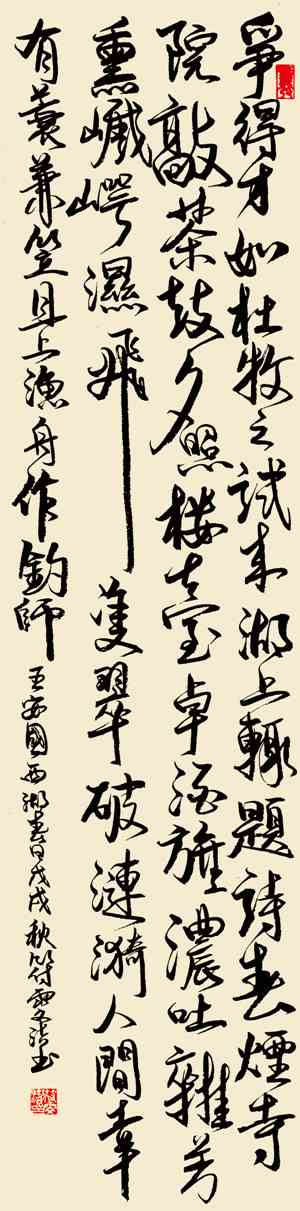 爭得才如杜牧之試来湖上輙題詩春煙寺
院敲茶鼓夕照楼臺卓酒旗濃吐雜芳
熏巘崿濕飛隻翠破漣漪人間幸
有蓑兼笠且上漁舟作釣師
王安國西湖春日戊戌秋符书